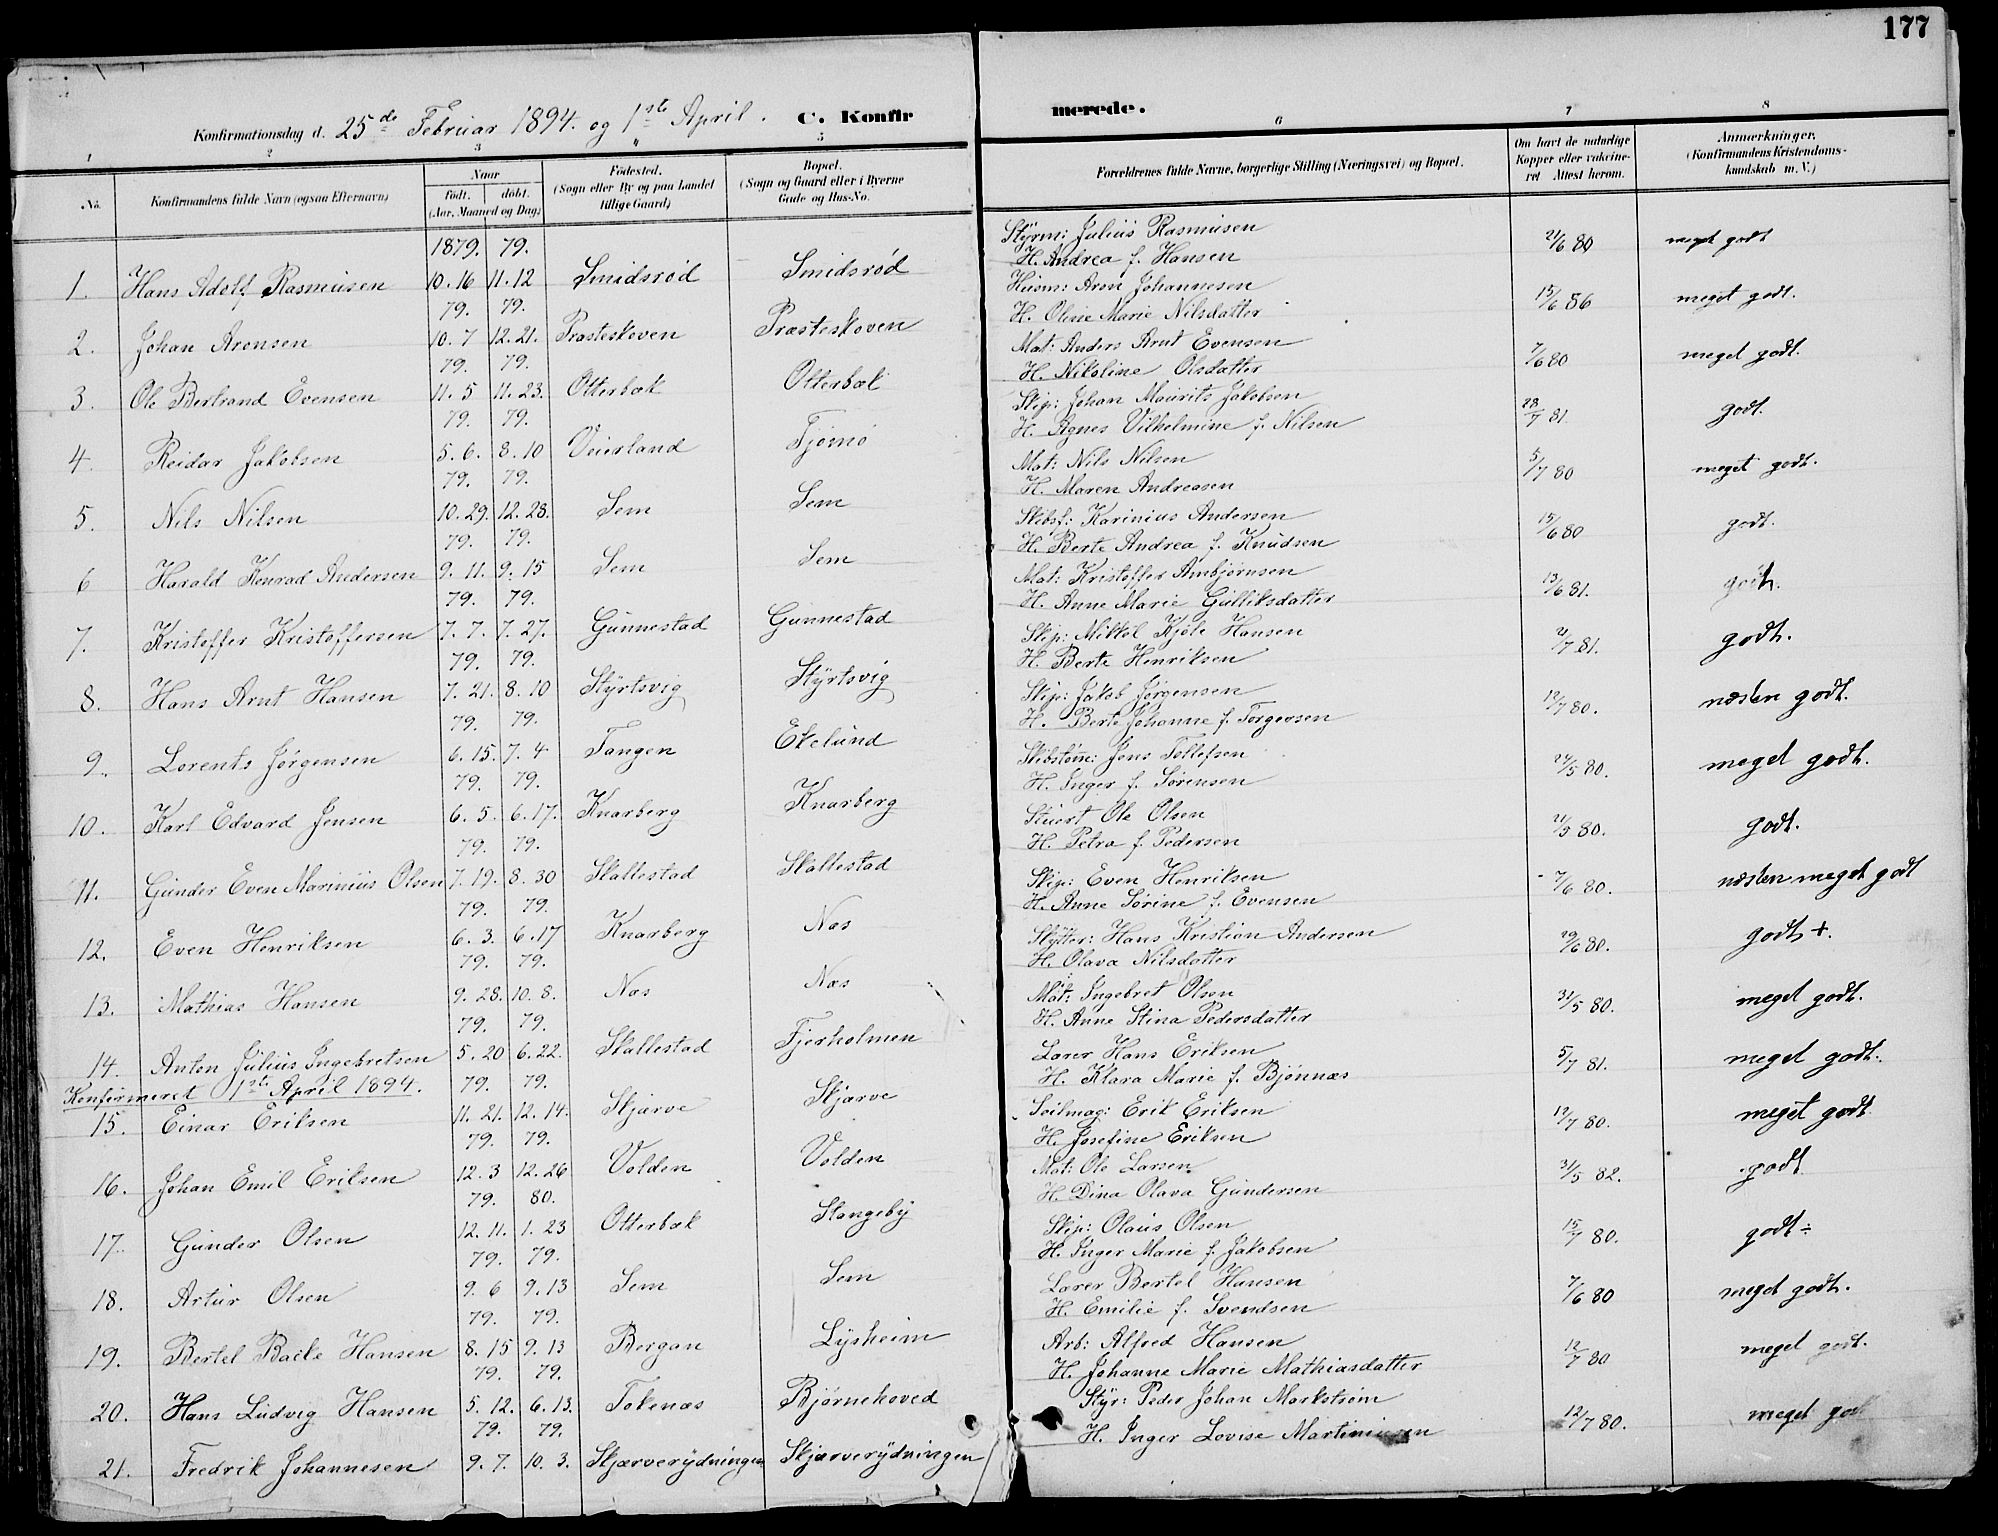 177
Konfirmationsdag d. 25de Februar 1894. og 1ste April. C. Konfir merede.
1 2 3 4 5 6 7 8
No. Konfirmandens fulde Navn (ogsaa Efternavn) Naar født. døbt. (Aar, Maaned og Dag) Fødested. (Sogn eller By og paa Landet tillige Gaard) Bopæl. (Sogn og Gaard eller i Byerne Gade og Hus-No. Forældrenes fulde Navne, borgerlige Stilling (Næringsvei) og Bopæl. Om havt de naturlige Kopper eller vakcineret Attest herom. Anmærkninger. (Konfirmandens Kristendomskundskab m. V.)
1879. 79. Styrm: Julius Rasmusen 21/6 80 meget godt
1. Hans Adolf Rasmusen 10.16 11.12 Smidsrød Smidsrød H. Andrea f. Hansen
79. 79. Husm: Aron Johannesen 15/6 86 meget godt.
2. Johan Aronsen 10.7 12.21. Præsteskoven Præsteskoven H. Oline Marie Nilsdatter
79. 79. Mat: Anders Arnt Evensen 7/6 80 meget godt.
3. Ole Bertrand Evensen 11.5 11.23. Otterbæk Otterbæk H. Nikoline Olsdatter
79. 79. Skip: Johan Maurits Jakobsen 28/7 81 godt.
4. Reidar Jakobsen 5.6. 8.10 Veierland Tjømø H. Agnes Vilhelmine f. Nilsen
79. 79. Mat: Nils Nilsen 5/7 80 meget godt.
5. Nils Nilsen 10.29. 12.28. Sem Sem H. Maren Andreasen
79. 79. Skibsf: Karinius Andersen 15/6 80 godt.
6 Harald Konrad Andersen 9.11. 9.15 Sem Sem H. Berte Andrea f. Knudsen
79. 79. Mat: Kristoffer Ambjørnsen 13/6 81. godt.
7. Kristoffer Kristoffersen 7.7. 7.27. Gunnestad Gunnestad H. Anne Marie Gulliksdatter
79. 79. Skip: Mikkel Kjøle Hansen 2/7 81. godt.
8. Hans Arnt Hansen 7.21. 8.10 Styrtsvig Styrtsvig H. Berte Henriksen
79. 79. Skip: Jakob Jørgensen 12/7 80. næsten godt.
9. Lorents Jørgensen 6.15. 7.4 Tangen Ekelund H. Berte Johanne f. Torgersen
79. 79. Skibstøm: Jens Tollefsen 24/5 80. meget godt.
10. Karl Edvard Jensen 6.5. 6.17. Knarberg Knarberg H. Inger f. Sørensen
79. 79. Stuert Ole Olsen 21/5 80. godt.
11. Gunder Even Marinius Olsen 7.19. 8.30 Skallestad Skallestad H. Petra f. Pedersen
79. 79. Skip: Even Henriksen 7/6 80. næsten meget godt
12. Even Henriksen 6.3. 6.17 Knarberg Næs H. Anne Sørine f. Evensen
79. 79. Skytter: Hans Kristian Andersen 29/6 80. godt +.
13. Mathias Hansen 9.28. 10.8. Næs Næs H. Olava Nilsdatter
79. 79. Mat: Ingebret Olsen 31/5 80. meget godt.
14. Anton Julius Ingebretsen 5.20 6.22. Skallestad Fjerholmen H. Anne Stina Pedersdatter
Konfirmeret 1ste April 1894. 79. 79. Lærer Hans Eriksen 5/7 81. meget godt.
15. Einar Eriksen 11.21. 12.14. Skjærve Skjærve H. Klara Marie f. Bjønnæs
79. 79. Seilmag: Erik Eriksen 12/7 80. meget godt
16. Johan Emil Eriksen 12.3 12.26 Volden Volden H. Josefine Eriksen
79. 80. Mat: Ole Larsen 31/5 82. godt
17. Gunder Olsen 12.11. 1.23 Otterbæk Stangeby H. Dina Olava Gundersen
79. 79. Skip: Olaus Olsen 15/7 80. godt ÷
18. Artur Olsen 9.6 9.13 Sem Sem H. Inger Marie f. Jakobsen
79. 79. Lærer Bertel Hansen 7/6 80 meget godt.
19. Bertel Bache Hansen 8.15 9.13 Bergan Lysheim H. Emilie f. Svendsen
79. 79. Arb: Alfred Hansen 12/7 80 meget godt.
20. Hans Ludvig Hansen 5.12. 6.13. Tokenæs Bjørnehoved H. Johanne Marie Mathiasdatter
79. 79. Styr: Peder Johan Markstrøm 12/7 80. meget
21. Fredrik Johannesen 9.7. 10.3. Skjærverydningen Skjærverydningen H. Inger Lovise Martiniusen